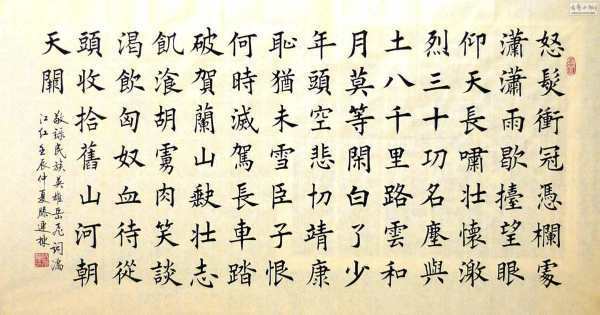 怒髮衝冠憑欄處
瀟瀟雨歇擡望眼
仰天長嘯壯懷激
烈三十功名塵與
土八千里路雲和
月莫等閑白了少
年頭空悲切靖康
恥猶未雪臣子恨
何時滅駕長車踏
破賀蘭山缺壯志
飢湌胡虜肉笑談
渴飲匈奴血待從
頭收拾舊山河朝
天闕
敬錄民族英雄岳飛詞滿
江紅壬辰仲夏滕運棟